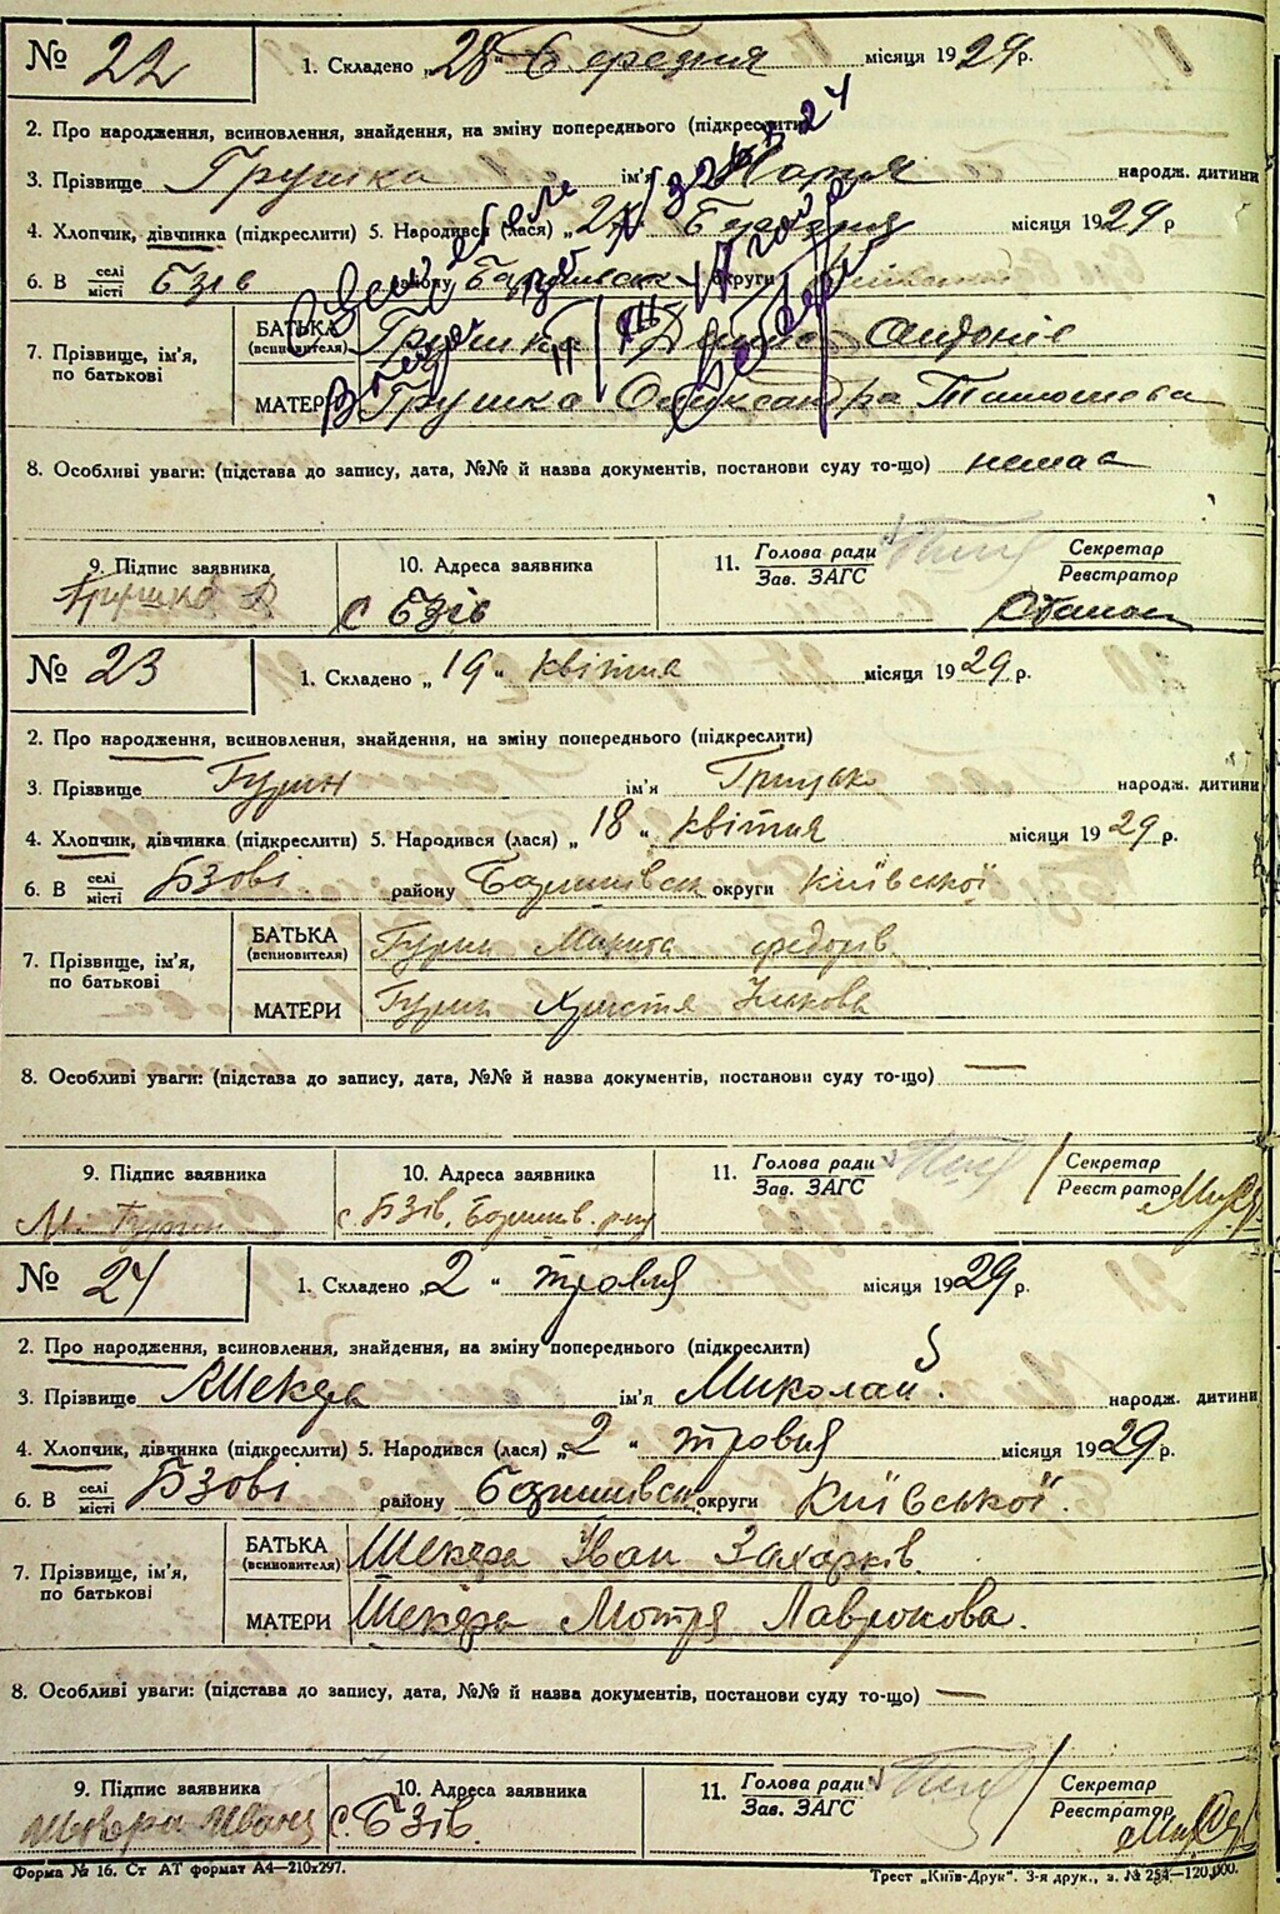 № 22 1. Складено „28“ Березня місяця 1929 р.
2. Про народження, всиновлення, знайдення, на зміну попереднього (підкреслити)
3. Прізвище Грушка ім'я народж. дитини
4. Хлопчик, дівчинка (підкреслити) 5. Народився (лася) „ “ Березня місяця 1929 р
6. В селі місті Бзів району Баришівськ округи
7. Прізвище, ім'я, по батькові
БАТЬКА (всиновителя) Грушка
МАТЕРИ Грушка Олександра
8. Особливі уваги: (підстава до запису, дата, №№ й назва документів, постанови суду то-що) немає
9. Підпис заявника 10. Адреса заявника 11. Голова ради Зав. ЗАГС Секретар Реєстратор
Грушка Д с Бзів
№ 23 1. Складено „19“ квітня місяця 1929 р.
2. Про народження, всиновлення, знайдення, на зміну попереднього (підкреслити)
3. Прізвище Гурин ім'я Грицько народж. дитини
4. Хлопчик, дівчинка (підкреслити) 5. Народився (лася) „18“ квітня місяця 1929 р.
6. В селі місті Бзові району Баришівськ округи Київської
7. Прізвище, ім'я, по батькові
БАТЬКА (всиновителя) Гурин Микита Федорів
МАТЕРИ Гурин Христя
8. Особливі уваги: (підстава до запису, дата, №№ й назва документів, постанови суду то-що) —
9. Підпис заявника 10. Адреса заявника 11. Голова ради Зав. ЗАГС Секретар Реєстратор
М. Гурин с. Бзів, Баришів. р-ну
№ 24 1. Складено „2“ травня місяця 1929 р.
2. Про народження, всиновлення, знайдення, на зміну попереднього (підкреслити)
3. Прізвище Шекера ім'я Миколай. народж. дитини
4. Хлопчик, дівчинка (підкреслити) 5. Народився (лася) „2“ травня місяця 1929 р.
6. В селі місті Бзові району Баришівськ округи Київської.
7. Прізвище, ім'я, по батькові
БАТЬКА (всиновителя) Шекера Іван Захарків.
МАТЕРИ Шекера Мотря Лаврокова.
8. Особливі уваги: (підстава до запису, дата, №№ й назва документів, постанови суду то-що) —
9. Підпис заявника 10. Адреса заявника 11. Голова ради Зав. ЗАГС Секретар Реєстратор
с. Бзів.
Форма № 16. Ст АТ формат А4—210х297. Трест „Київ-Друк“. 3-я друк., з. № 254—120,000.